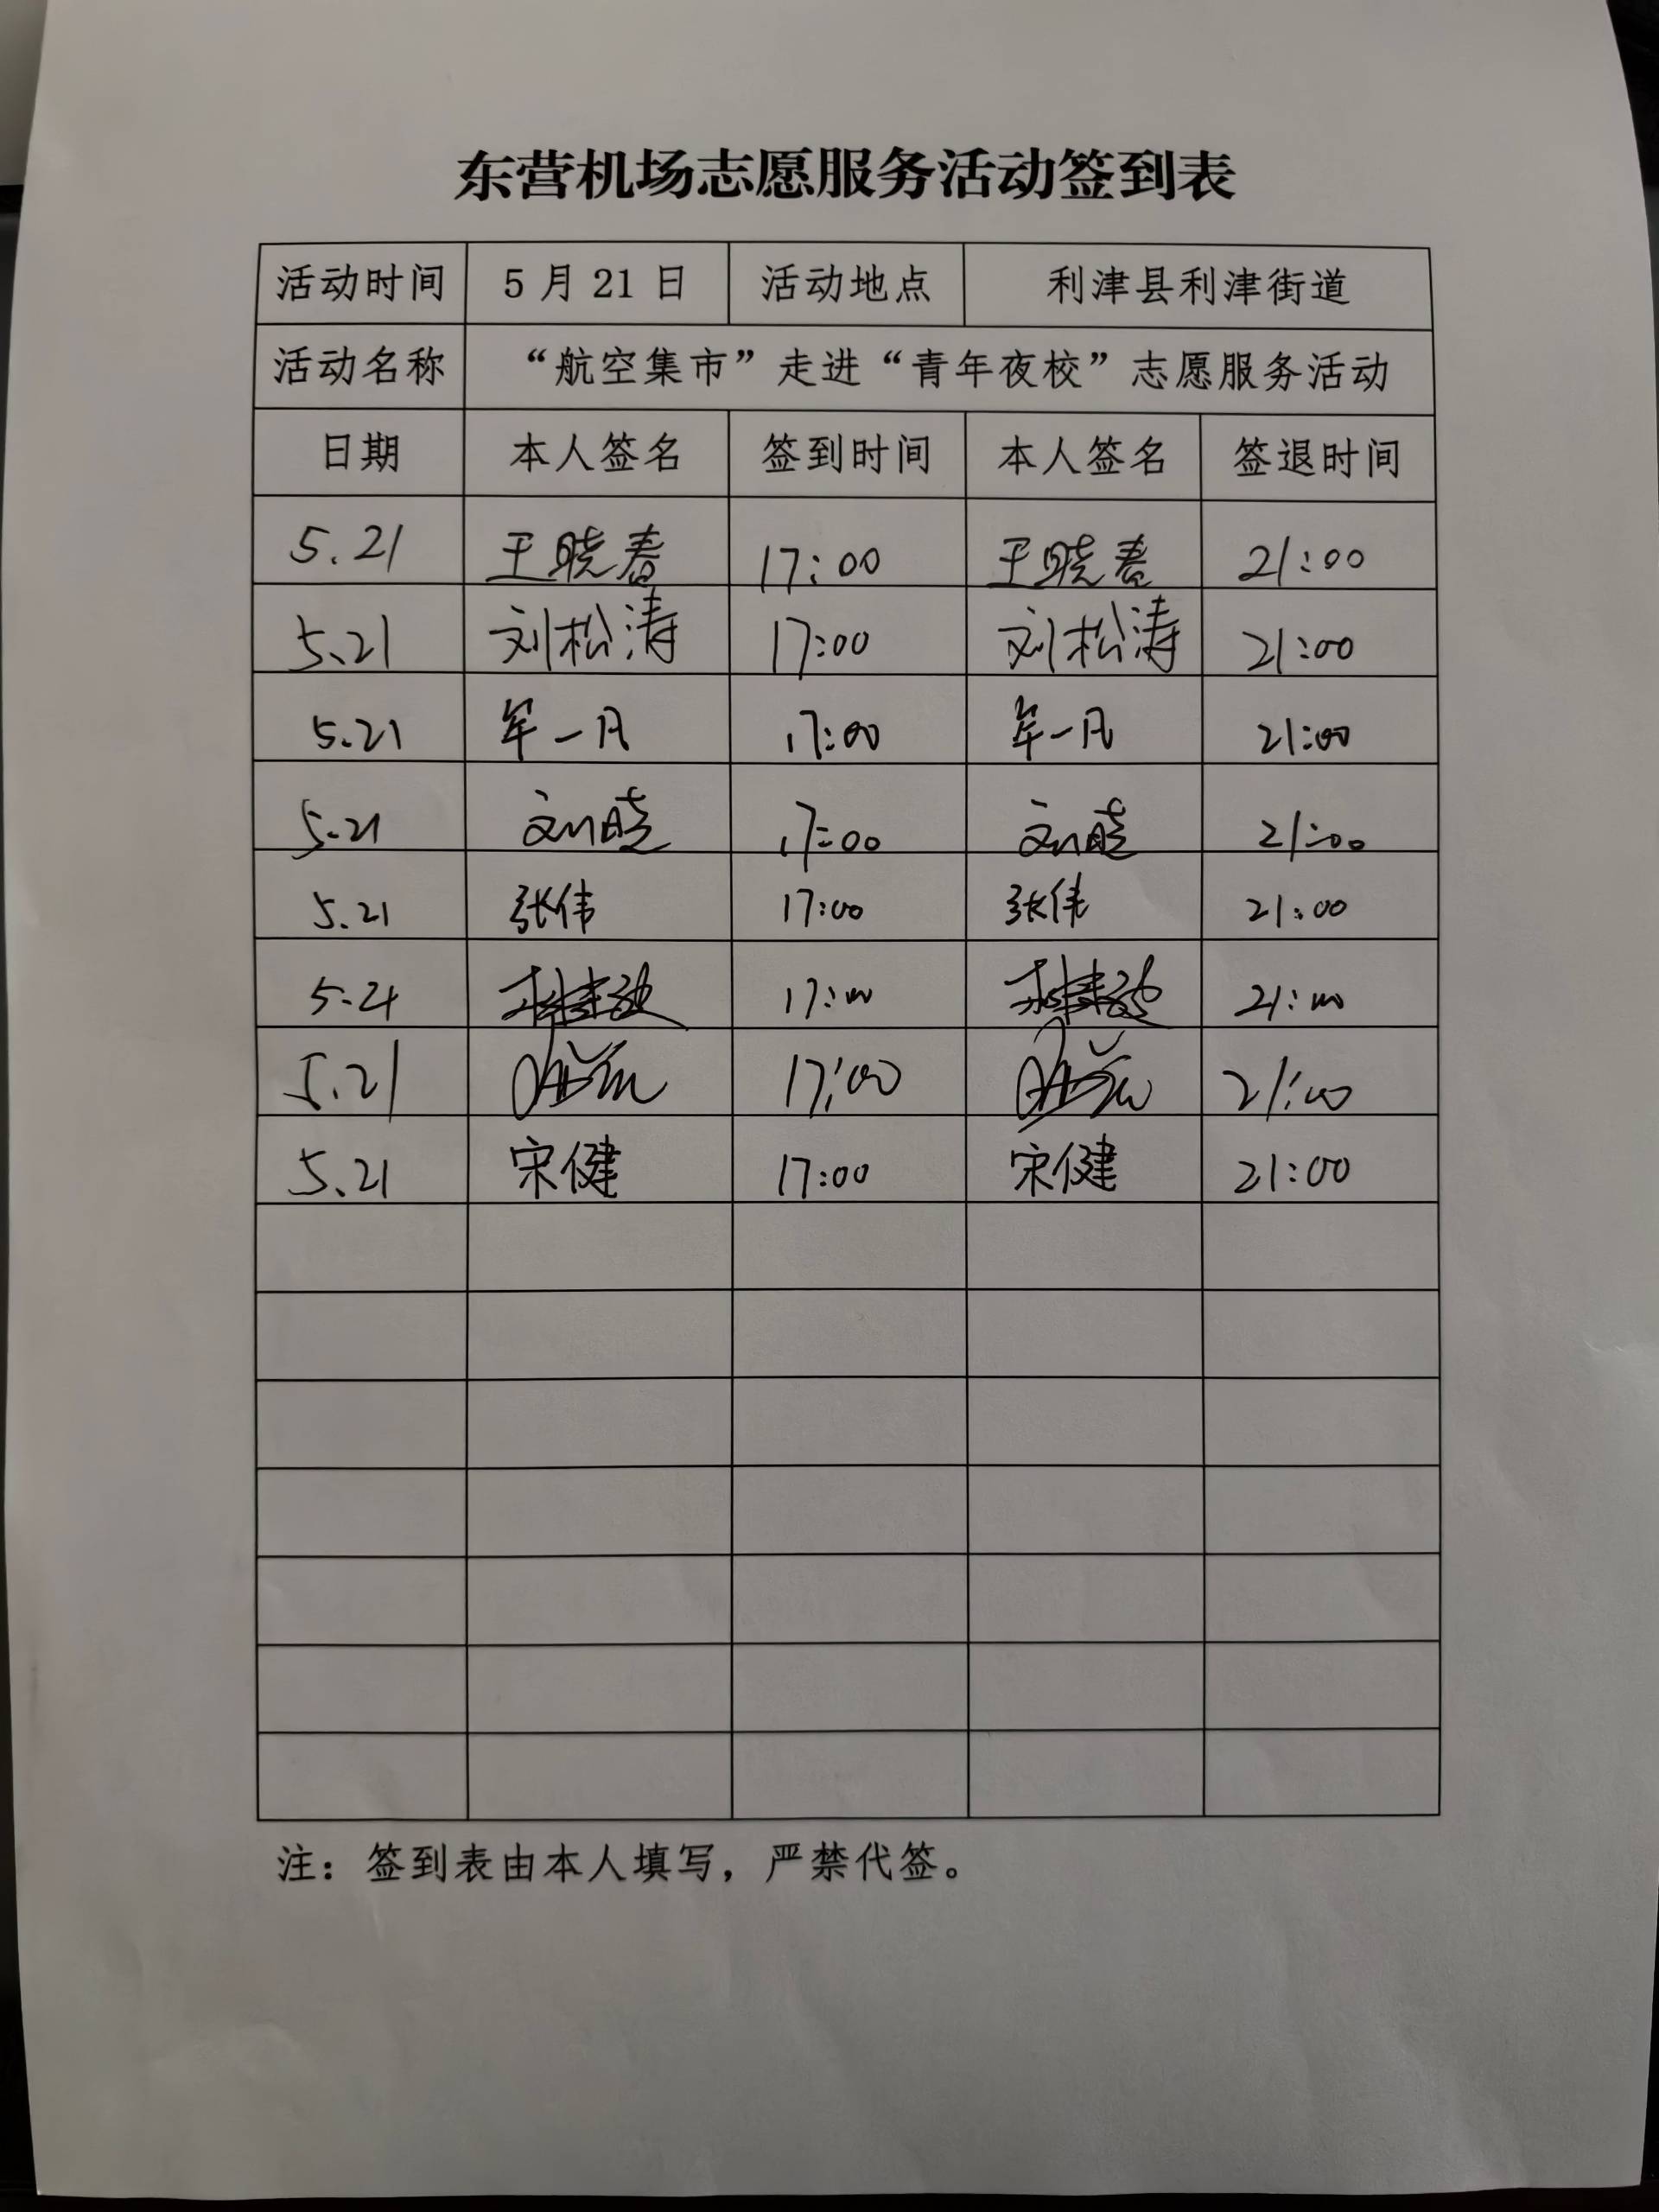 东营机场志愿服务活动签到表
活动时间 5月21日 活动地点 利津县利津街道
活动名称 “航空集市”走进“青年夜校”志愿服务活动
日期 本人签名 签到时间 本人签名 签退时间
5.21 王晓春 17:00 王晓春 21:00
5.21 刘松涛 17:00 刘松涛 21:00
5.21 牟一凡 17:00 牟一凡 21:00
5.21 刘晓 17:00 刘晓 21:00
5.21 张伟 17:00 张伟 21:00
5.21 17:00 21:00
5.21 17:00 21:00
5.21 宋健 17:00 宋健 21:00
注：签到表由本人填写，严禁代签。